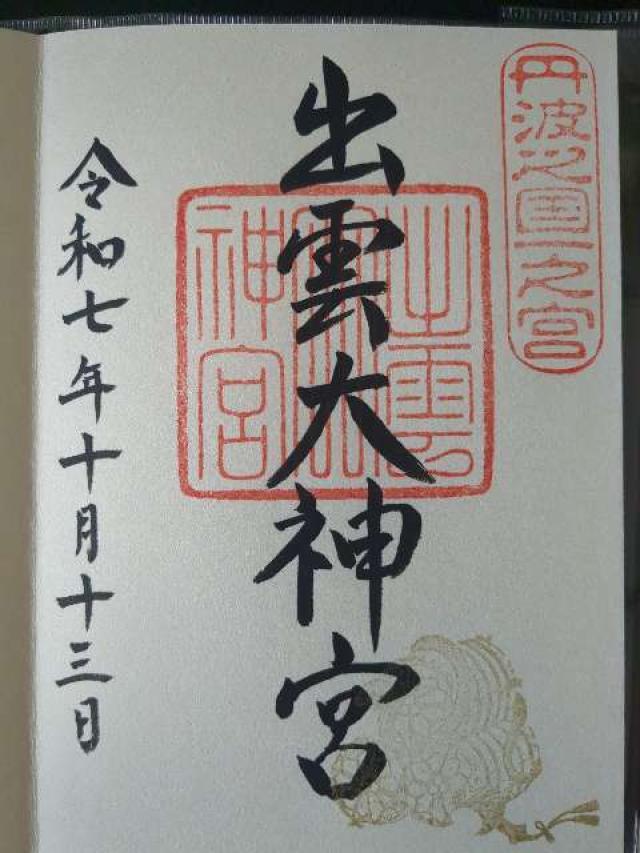 丹波之国一之宮
出雲大神宮
出雲大神宮
令和七年十月十三日